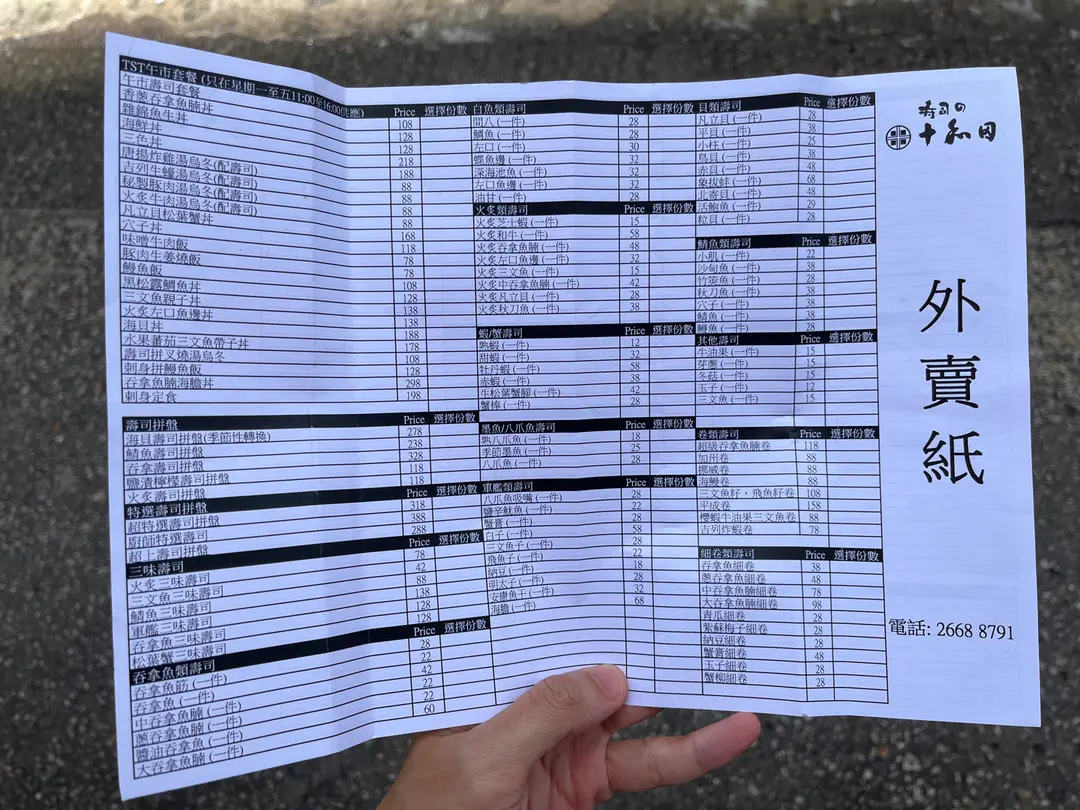 TST午市套餐 (只在星期一至五11:00至16:00供應) Price 選擇份數
午市壽司套餐 108
香蔥吞拿魚腩丼 128
雜錦魚生丼 128
海鮮丼 218
三色丼 188
唐揚炸雞湯烏冬(配壽司) 88
古列牛蠔湯烏冬(配壽司) 88
秘製豚肉湯烏冬(配壽司) 88
火炙牛肉湯烏冬(配壽司) 88
凡立貝松葉蟹丼 168
穴子丼 118
味噌牛肉飯 78
豚肉生姜燒飯 78
鰻魚飯 108
黑松露鯛魚丼 128
三文魚親子丼 138
火炙左口魚邊丼 138
海貝丼 188
水果蕃茄三文魚帶子丼 178
壽司拼叉燒湯烏冬 108
刺身拼鰻魚飯 128
吞拿魚腩海膽丼 298
刺身定食 198
壽司拼盤 Price 選擇份數
海貝壽司拼盤(季節性轉換) 278
鯖魚壽司拼盤 238
吞拿壽司拼盤 328
鹽漬檸檬壽司拼盤 118
火炙壽司拼盤 118
特選壽司拼盤 Price 選擇份數
超特選壽司拼盤 318
廚師特選壽司 388
超上壽司拼盤 288
三味壽司 Price 選擇份數
火炙三味壽司 78
三文魚三味壽司 42
鯖魚三味壽司 88
軍艦三味壽司 138
吞拿魚三味壽司 128
松葉蟹三味壽司 128
吞拿魚類壽司 Price 選擇份數
吞拿魚筋 (一件) 28
吞拿魚 (一件) 22
中吞拿魚腩 (一件) 42
蔥吞拿魚腩 (一件) 22
醬油吞拿魚 (一件) 22
大吞拿魚腩 (一件) 60
白魚類壽司 Price 選擇份數
間八 (一件) 28
鯛魚 (一件) 28
左口 (一件) 30
鰈魚邊 (一件) 32
深海池魚 (一件) 32
左口魚邊 (一件) 32
油甘 (一件) 28
火炙類壽司 Price 選擇份數
火炙芝士蝦 (一件) 15
火炙和牛 (一件) 58
火炙吞拿魚腩 (一件) 48
火炙左口魚邊 (一件) 32
火炙三文魚 (一件) 15
火炙中吞拿魚腩 (一件) 42
火炙凡立貝 (一件) 28
火炙秋刀魚 (一件) 38
蝦/蟹壽司 Price 選擇份數
熟蝦 (一件) 12
甜蝦 (一件) 32
牡丹蝦 (一件) 58
赤蝦 (一件) 38
生松葉蟹腳 (一件) 42
蟹棒 (一件) 28
墨魚/八爪魚壽司 Price 選擇份數
熟八爪魚 (一件) 18
季節墨魚 (一件) 25
八爪魚 (一件) 28
軍艦類壽司 Price 選擇份數
八爪魚吸嘴 (一件) 28
鹽辛魷魚 (一件) 22
蟹膏 (一件) 28
白子 (一件) 58
三文魚子 (一件) 28
飛魚子 (一件) 22
納豆 (一件) 18
明太子 (一件) 28
安康魚干 (一件) 32
海膽 (一件) 68
貝類壽司 Price 選擇份數
凡立貝 (一件) 28
平貝 (一件) 38
小柱 (一件) 25
鳥貝 (一件) 38
赤貝 (一件) 48
象拔蚌 (一件) 68
北寄貝 (一件) 48
活鮑魚 (一件) 29
粒貝 (一件) 28
鯖魚類壽司 Price 選擇份數
小肌 (一件) 22
沙甸魚 (一件) 38
竹筴魚 (一件) 28
秋刀魚 (一件) 38
穴子 (一件) 38
鯖魚 (一件) 38
鰻魚 (一件) 28
其他壽司 Price 選擇份數
牛油果 (一件) 15
芽蔥 (一件) 15
冬菇 (一件) 15
玉子 (一件) 12
三文魚 (一件) 15
卷類壽司 Price 選擇份數
超級吞拿魚腩卷 118
加州卷 88
挪威卷 88
海鰻卷 88
三文魚籽，飛魚籽卷 108
平成卷 158
櫻蝦牛油果三文魚卷 88
古列炸蝦卷 78
細卷類壽司 Price 選擇份數
吞拿魚細卷 38
蔥吞拿魚細卷 48
中吞拿魚腩細卷 78
大吞拿魚腩細卷 98
青瓜細卷 28
紫蘇梅子細卷 28
納豆細卷 28
蟹膏細卷 48
玉子細卷 28
蟹柳細卷 28
寿司の
十和田
外賣紙
電話: 2668 8791